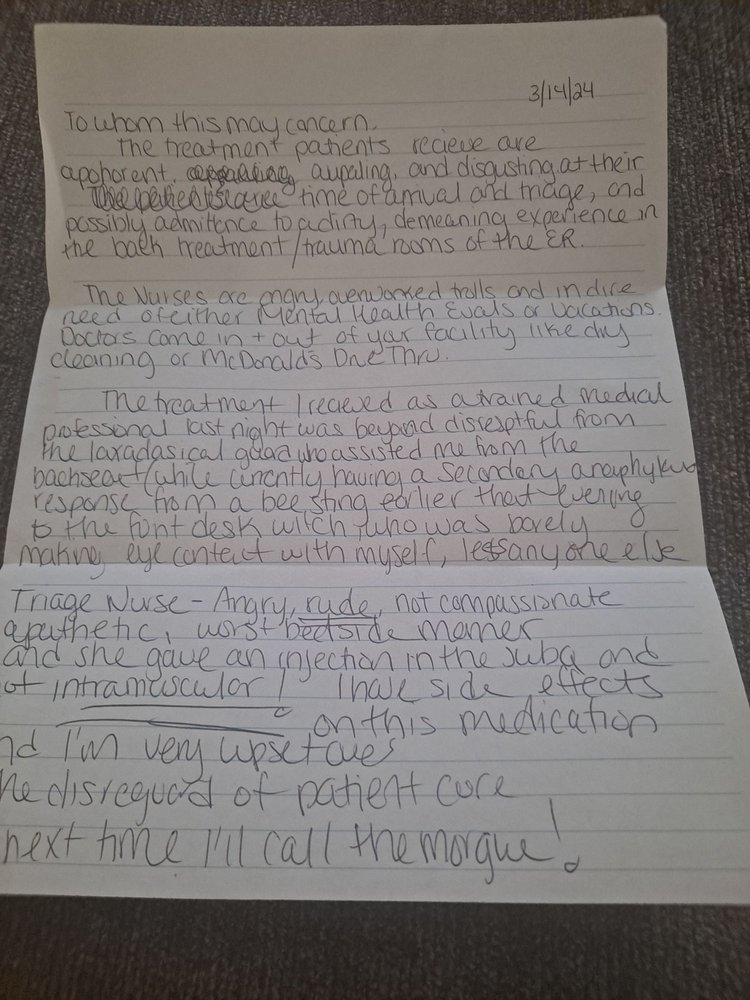 3/14/24
To whom this may concern.
The treatment patients recieve are
apohorent, aupaling, and disgusting, at their
time of arrival and triage, and
possibly admittence to acility, demeaning experience in
the back treatment/trauma rooms of the ER.
The Nurses are angry overworked trolls and in dire
need of either Mental Health Evals or Vacations.
Doctors come in + out of your facility like dry
cleaning or McDonald's Drive Thru.
The treatment I recieved as a trained medical
professional last night was beyond
the guard who assisted me from the
backseat (while currently having a Secondary
response from a bee sting earlier that evening
to the font desk witch, who was barely
making eye contact with myself, less anyone else
Triage Nurse - Angry, rude, not compassionate
apathetic, worst bedside manner
and she gave an injection in the subq and
ot intramuscular! I have side effects
on this medication
nd I'm very upset
he disreguard of patient care
next time I'll call the morgue!